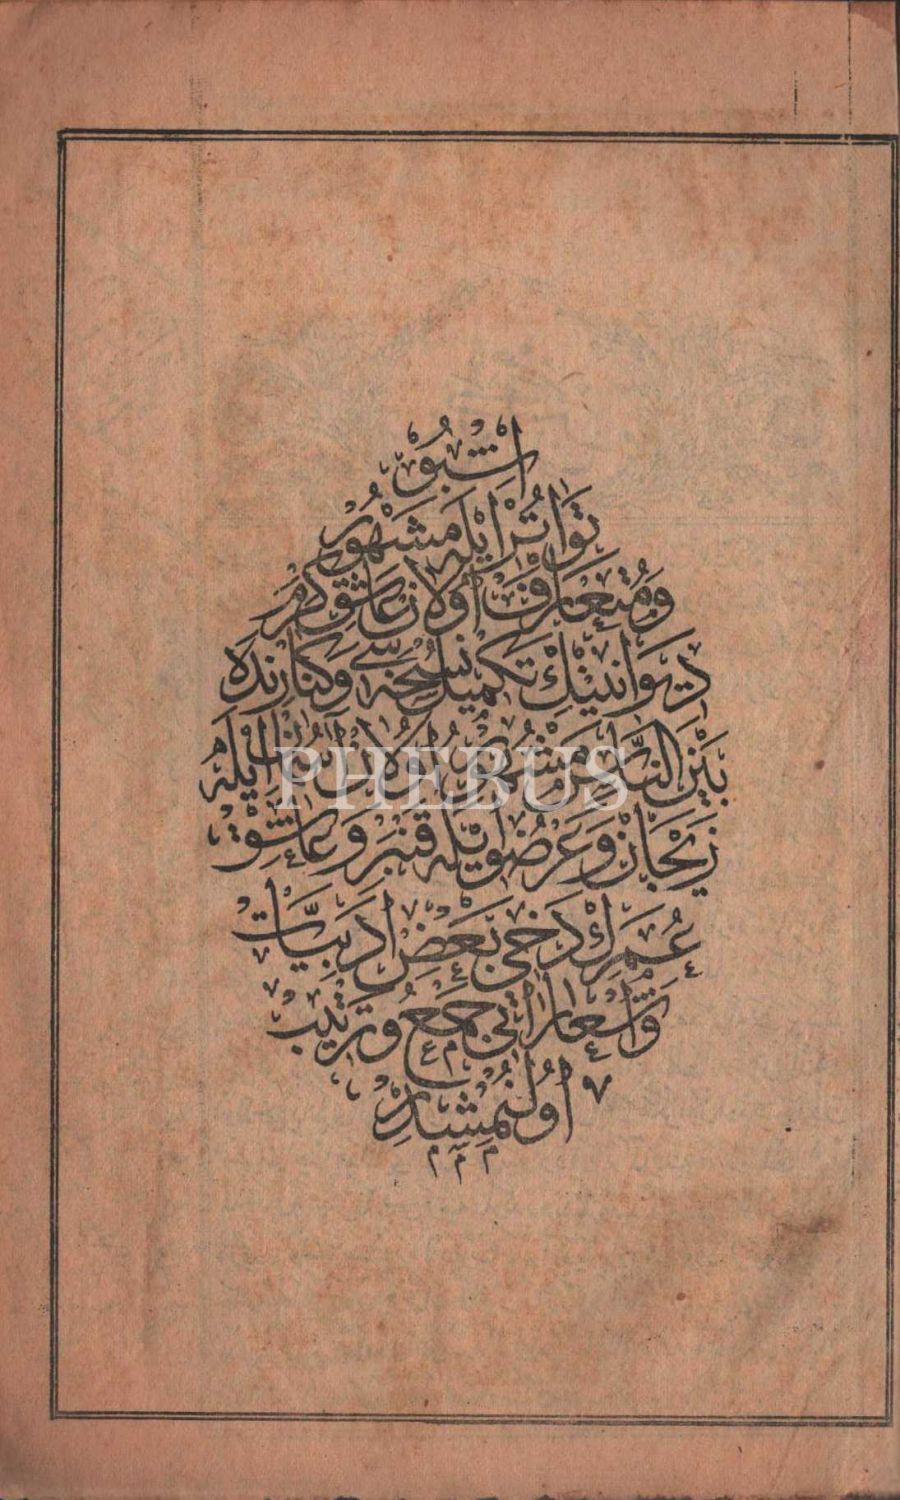 اشبو
تواتر ايله مشهور
ومتعارف اولان عاشق كرم
ديوانينك تكميل نسخه سى وكنارنده
بين الناس مشهور اولان ايله
زيجان وعرضو ايله قنبر وعاشق
عمرك دخى بعض ادبيات
واشعاراتى جمع وترتيب
اولنمشدر
م م م
PHEBUS